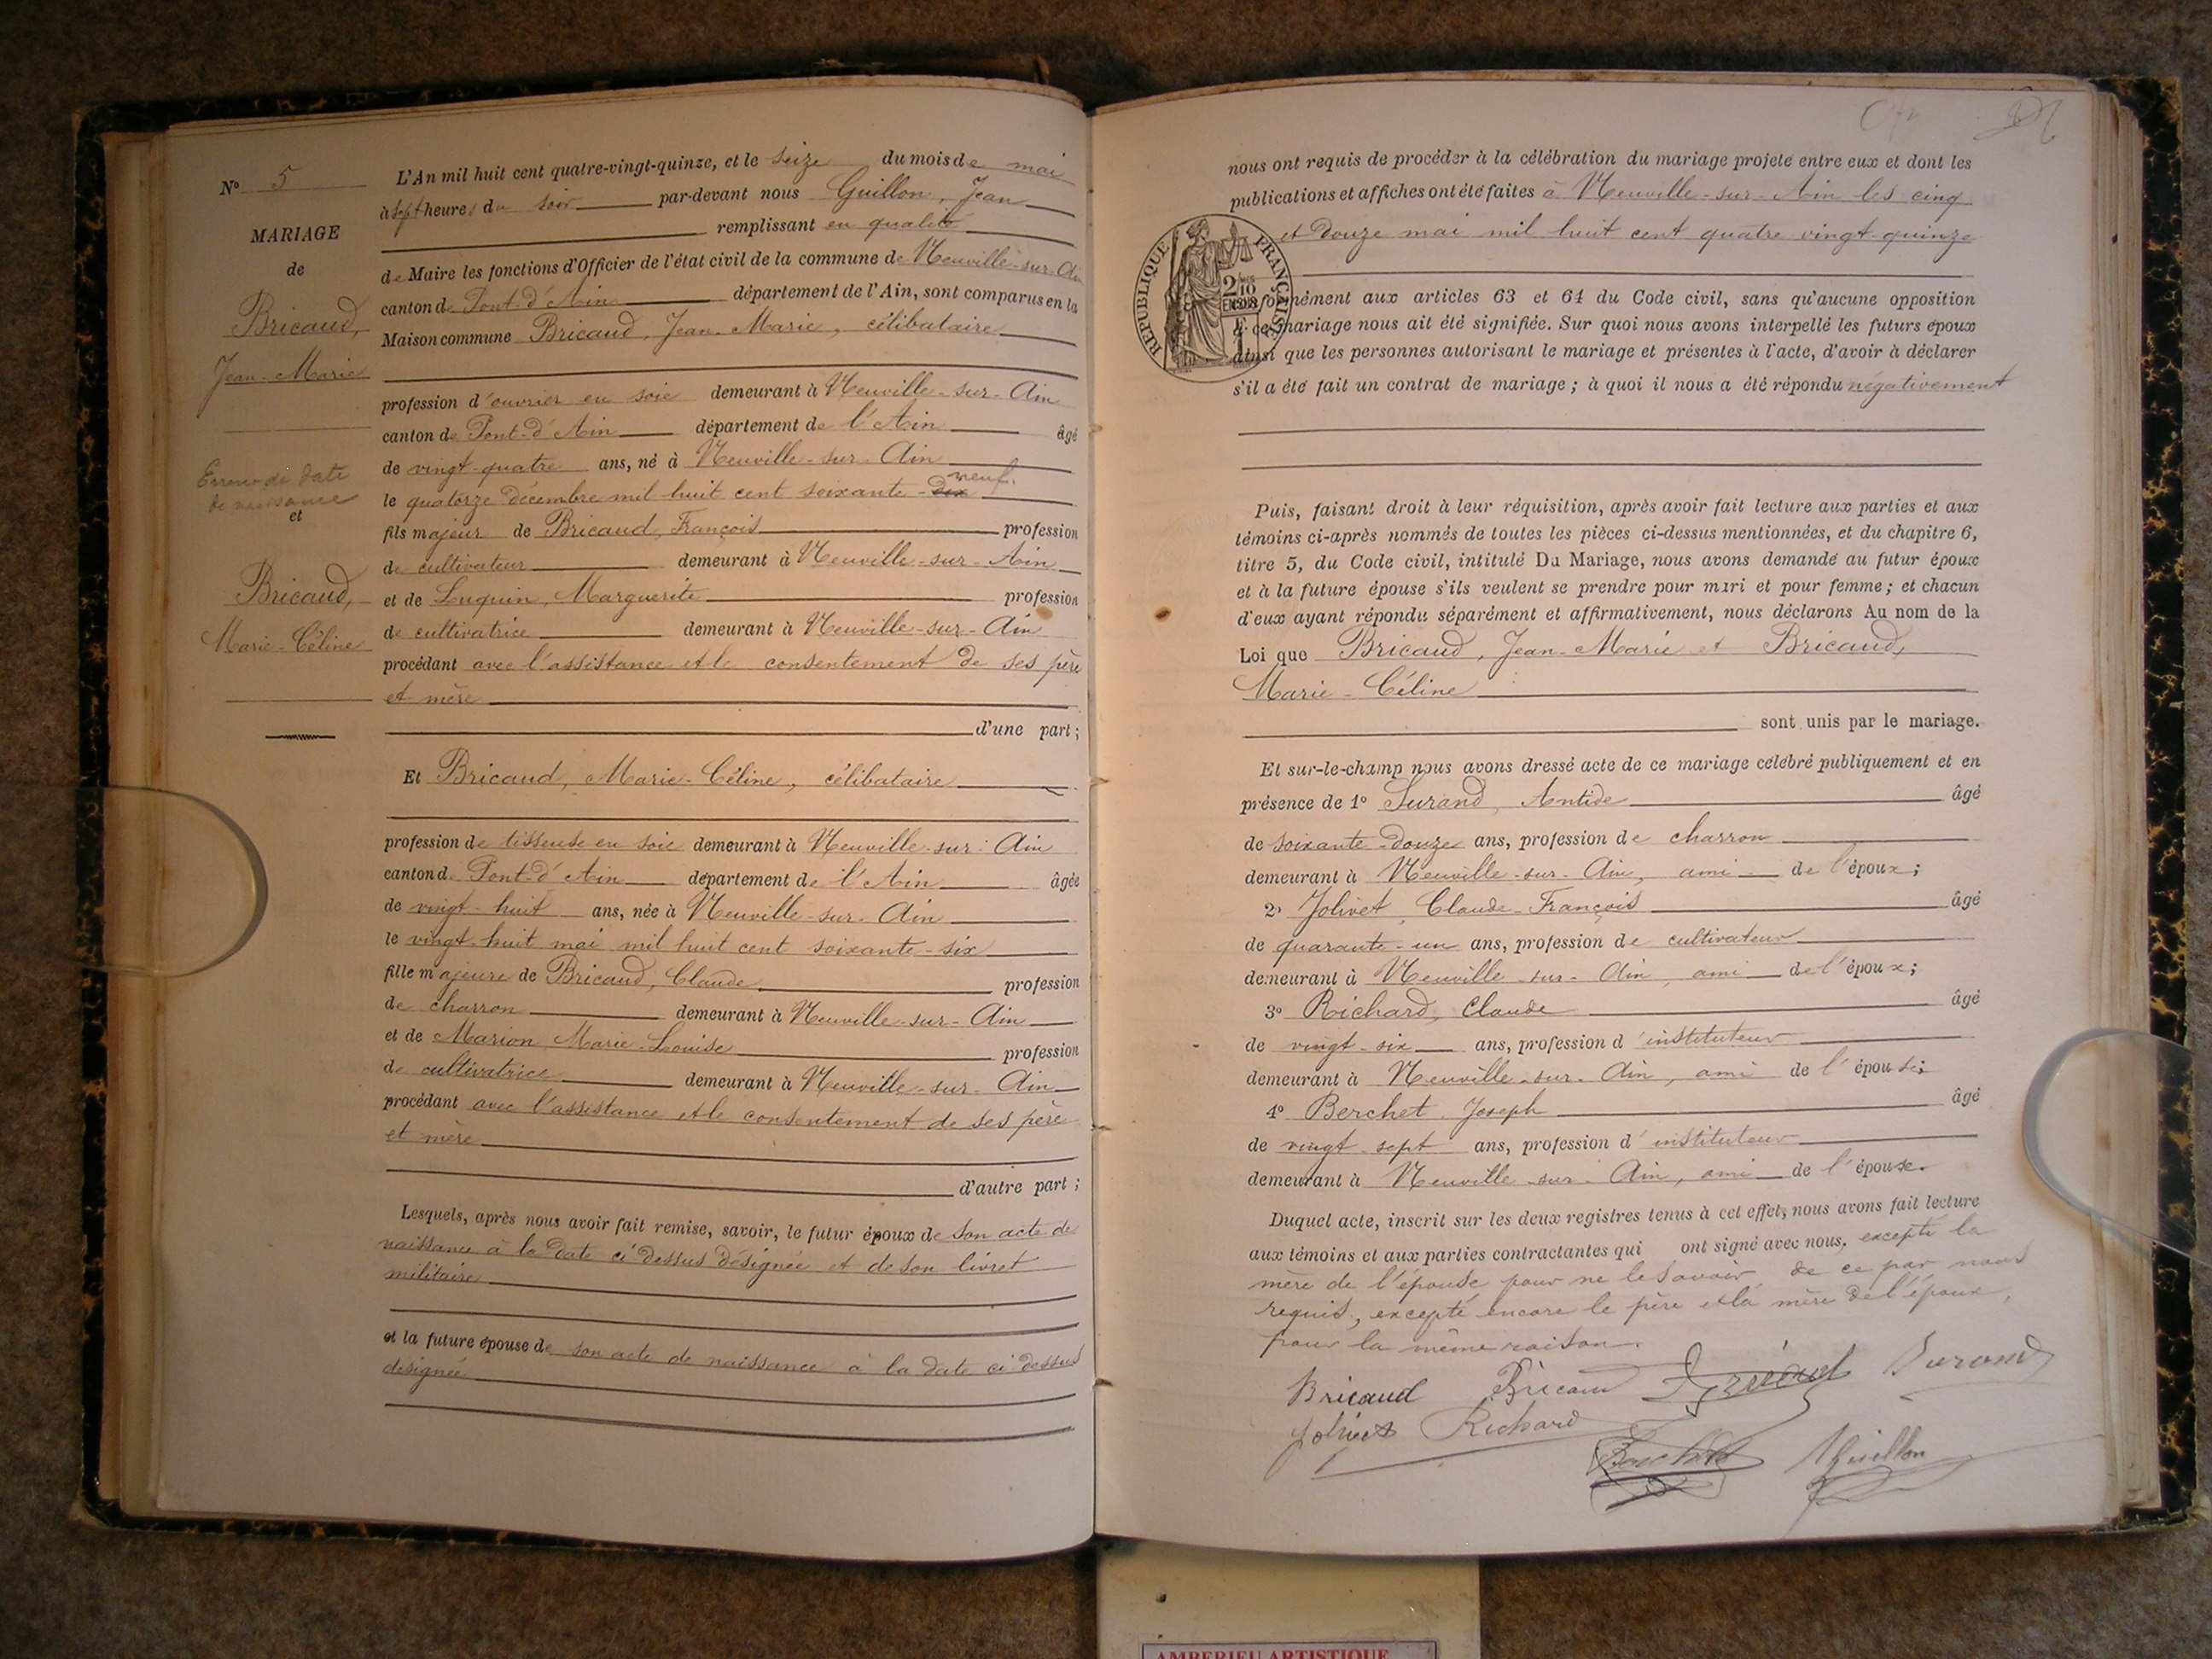 N° 5
MARIAGE
de
Bricaud,
Jean-Marie
Erreur de date
de naissance
et
Bricaud,
Marie-Céline
L'An mil huit cent quatre-vingt-quinze, et le seize du mois de mai
à sept heures du soir par-devant nous Guillon, Jean
remplissant en qualité
de Maire les fonctions d'Officier de l'état civil de la commune de Neuville-sur-Ain
canton de Pont-d'Ain département de l'Ain, sont comparus en la
Maison commune Bricaud, Jean-Marie, célibataire
profession d'ouvrier en soie demeurant à Neuville-sur-Ain
canton de Pont-d'Ain département de l'Ain âgé
de vingt-quatre ans, né à Neuville-sur-Ain
neuf.
le quatorze décembre mil huit cent soixante-dix
fils majeur de Bricaud, François profession
de cultivateur demeurant à Neuville-sur-Ain
et de Luquin, Marguerite profession
de cultivatrice demeurant à Neuville-sur-Ain
procédant avec l'assistance et le consentement de ses père
et mère
d'une part;
Et Bricaud, Marie-Céline, célibataire
profession de tisseuse en soie demeurant à Neuville-sur-Ain
canton de Pont-d'Ain département de l'Ain âgée
de vingt-huit ans, née à Neuville-sur-Ain
le vingt-huit mai mil huit cent soixante-six
fille majeure de Bricaud, Claude profession
de charron demeurant à Neuville-sur-Ain
et de Marion Marie-Louise profession
de cultivatrice demeurant à Neuville-sur-Ain
procédant avec l'assistance et le consentement de ses père
et mère
d'autre part;
Lesquels, après nous avoir fait remise, savoir, le futur époux de son acte de
naissance à la date ci-dessus désignée et de son livret
militaire
et la future épouse de son acte de naissance à la date ci-dessus
désignée
nous ont requis de procéder à la célébration du mariage projeté entre eux et dont les
publications et affiches ont été faites à Neuville-sur-Ain les cinq
et douze mai mil huit cent quatre vingt-quinze
RÉPUBLIQUE FRANÇAISE
2/10
EN SUS
formément aux articles 63 et 64 du Code civil, sans qu'aucune opposition
à ce mariage nous ait été signifiée. Sur quoi nous avons interpellé les futurs époux
ainsi que les personnes autorisant le mariage et présentes à l'acte, d'avoir à déclarer
s'il a été fait un contrat de mariage; à quoi il nous a été répondu négativement
Puis, faisant droit à leur réquisition, après avoir fait lecture aux parties et aux
témoins ci-après nommés de toutes les pièces ci-dessus mentionnées, et du chapitre 6,
titre 5, du Code civil, intitulé Du Mariage, nous avons demandé au futur époux
et à la future épouse s'ils veulent se prendre pour mari et pour femme; et chacun
d'eux ayant répondu séparément et affirmativement, nous déclarons Au nom de la
Loi que Bricaud, Jean-Marie et Bricaud,
Marie-Céline
sont unis par le mariage.
Et sur-le-champ nous avons dressé acte de ce mariage célébré publiquement et en
présence de 1° Surand, Antide âgé
de soixante-douze ans, profession de charron
demeurant à Neuville-sur-Ain, ami de l'époux;
2° Jolivet, Claude-François âgé
de quarante-un ans, profession de cultivateur
demeurant à Neuville-sur-Ain, ami de l'époux;
3° Richard, Claude âgé
de vingt-six ans, profession d'instituteur
demeurant à Neuville-sur-Ain, ami de l'épouse;
4° Berchet Joseph âgé
de vingt-sept ans, profession d'instituteur
demeurant à Neuville-sur-Ain, ami de l'épouse.
Duquel acte, inscrit sur les deux registres tenus à cet effet, nous avons fait lecture
aux témoins et aux parties contractantes qui ont signé avec nous, excepté la
mère de l'épouse pour ne le savoir, de ce par nous
requis, excepté encore le père et la mère de l'époux,
pour la même raison.
Bricaud Bricaud Bricaud Surand
Jolivet Richard
Berchet Guillon
AMBERIEU ARTISTIQUE